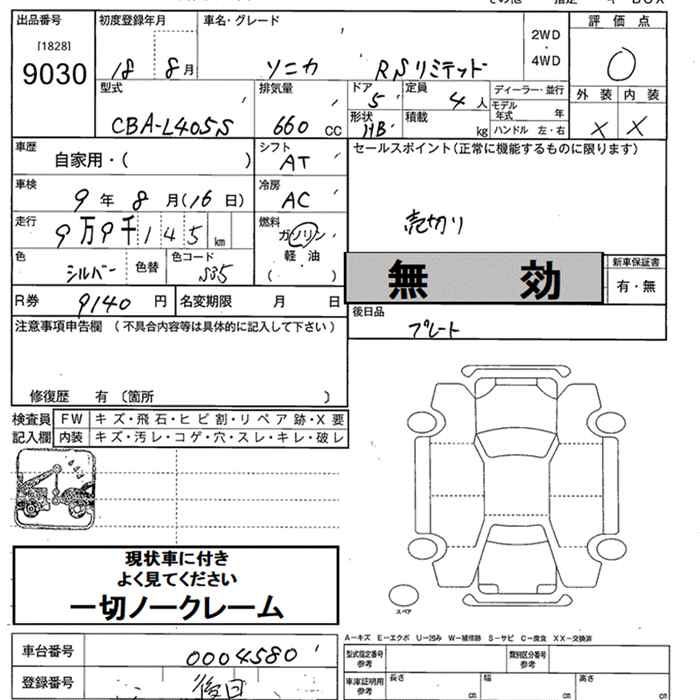 出品番号 初度登録年月 車名・グレード 評価点
[1828] 2WD
9030 18 8月 ソニカ RSリミテッド ・ ○
4WD
型式 排気量 ドア 5 定員 4人 ディーラー・並行 外装 内装
CBA-L405S 660 CC 形状 HB 積載 kg モデル年式 年 × ×
ハンドル 左・右
車歴 自家用・( ) シフト AT セールスポイント(正常に機能するものに限ります)
車検 9年 8月(16日) 冷房 AC
走行 9万9千145 km 燃料 ガソリン 売切り
軽油
( )
色 シルバー 色替 色コード S35 無効 新車保証書
有・無
R券 9140円 名変期限 月 日 後日品
注意事項申告欄 (不具合内容等は具体的に記入して下さい) プレート
修復歴 有 〔箇所 〕
検査員 FW キズ・飛石・ヒビ割・リペア跡・X要
記入欄 内装 キズ・汚レ・コゲ・穴・スレ・キレ・破レ
現状車に付き
よく見てください
一切ノークレーム
スペア
A-キズ E-エクボ U-凹み W-補修跡 S-サビ C-腐食 XX-交換済
車台番号 0004580 型式指定番号 参考 類別区分番号 参考
登録番号 後日 車庫証明用 参考 長さ cm 幅 cm 高さ cm